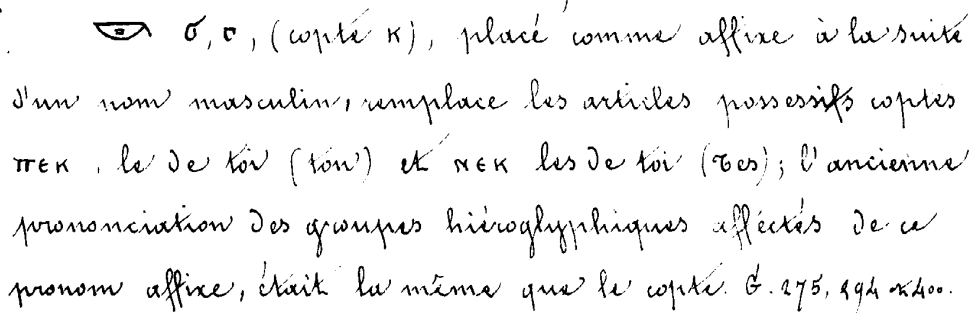 𓎡 σ, σ, (copte ⲕ), placé comme affixe à la suite
d'un nom masculin, remplace les articles possessifs coptes
ⲡⲉⲕ, le de toi (ton) et ⲛⲉⲕ les de toi (tes); l'ancienne
prononciation des groupes hiéroglyphiques affectés de ce
pronom affixe, était la même que le copte. G. 275, 294 &